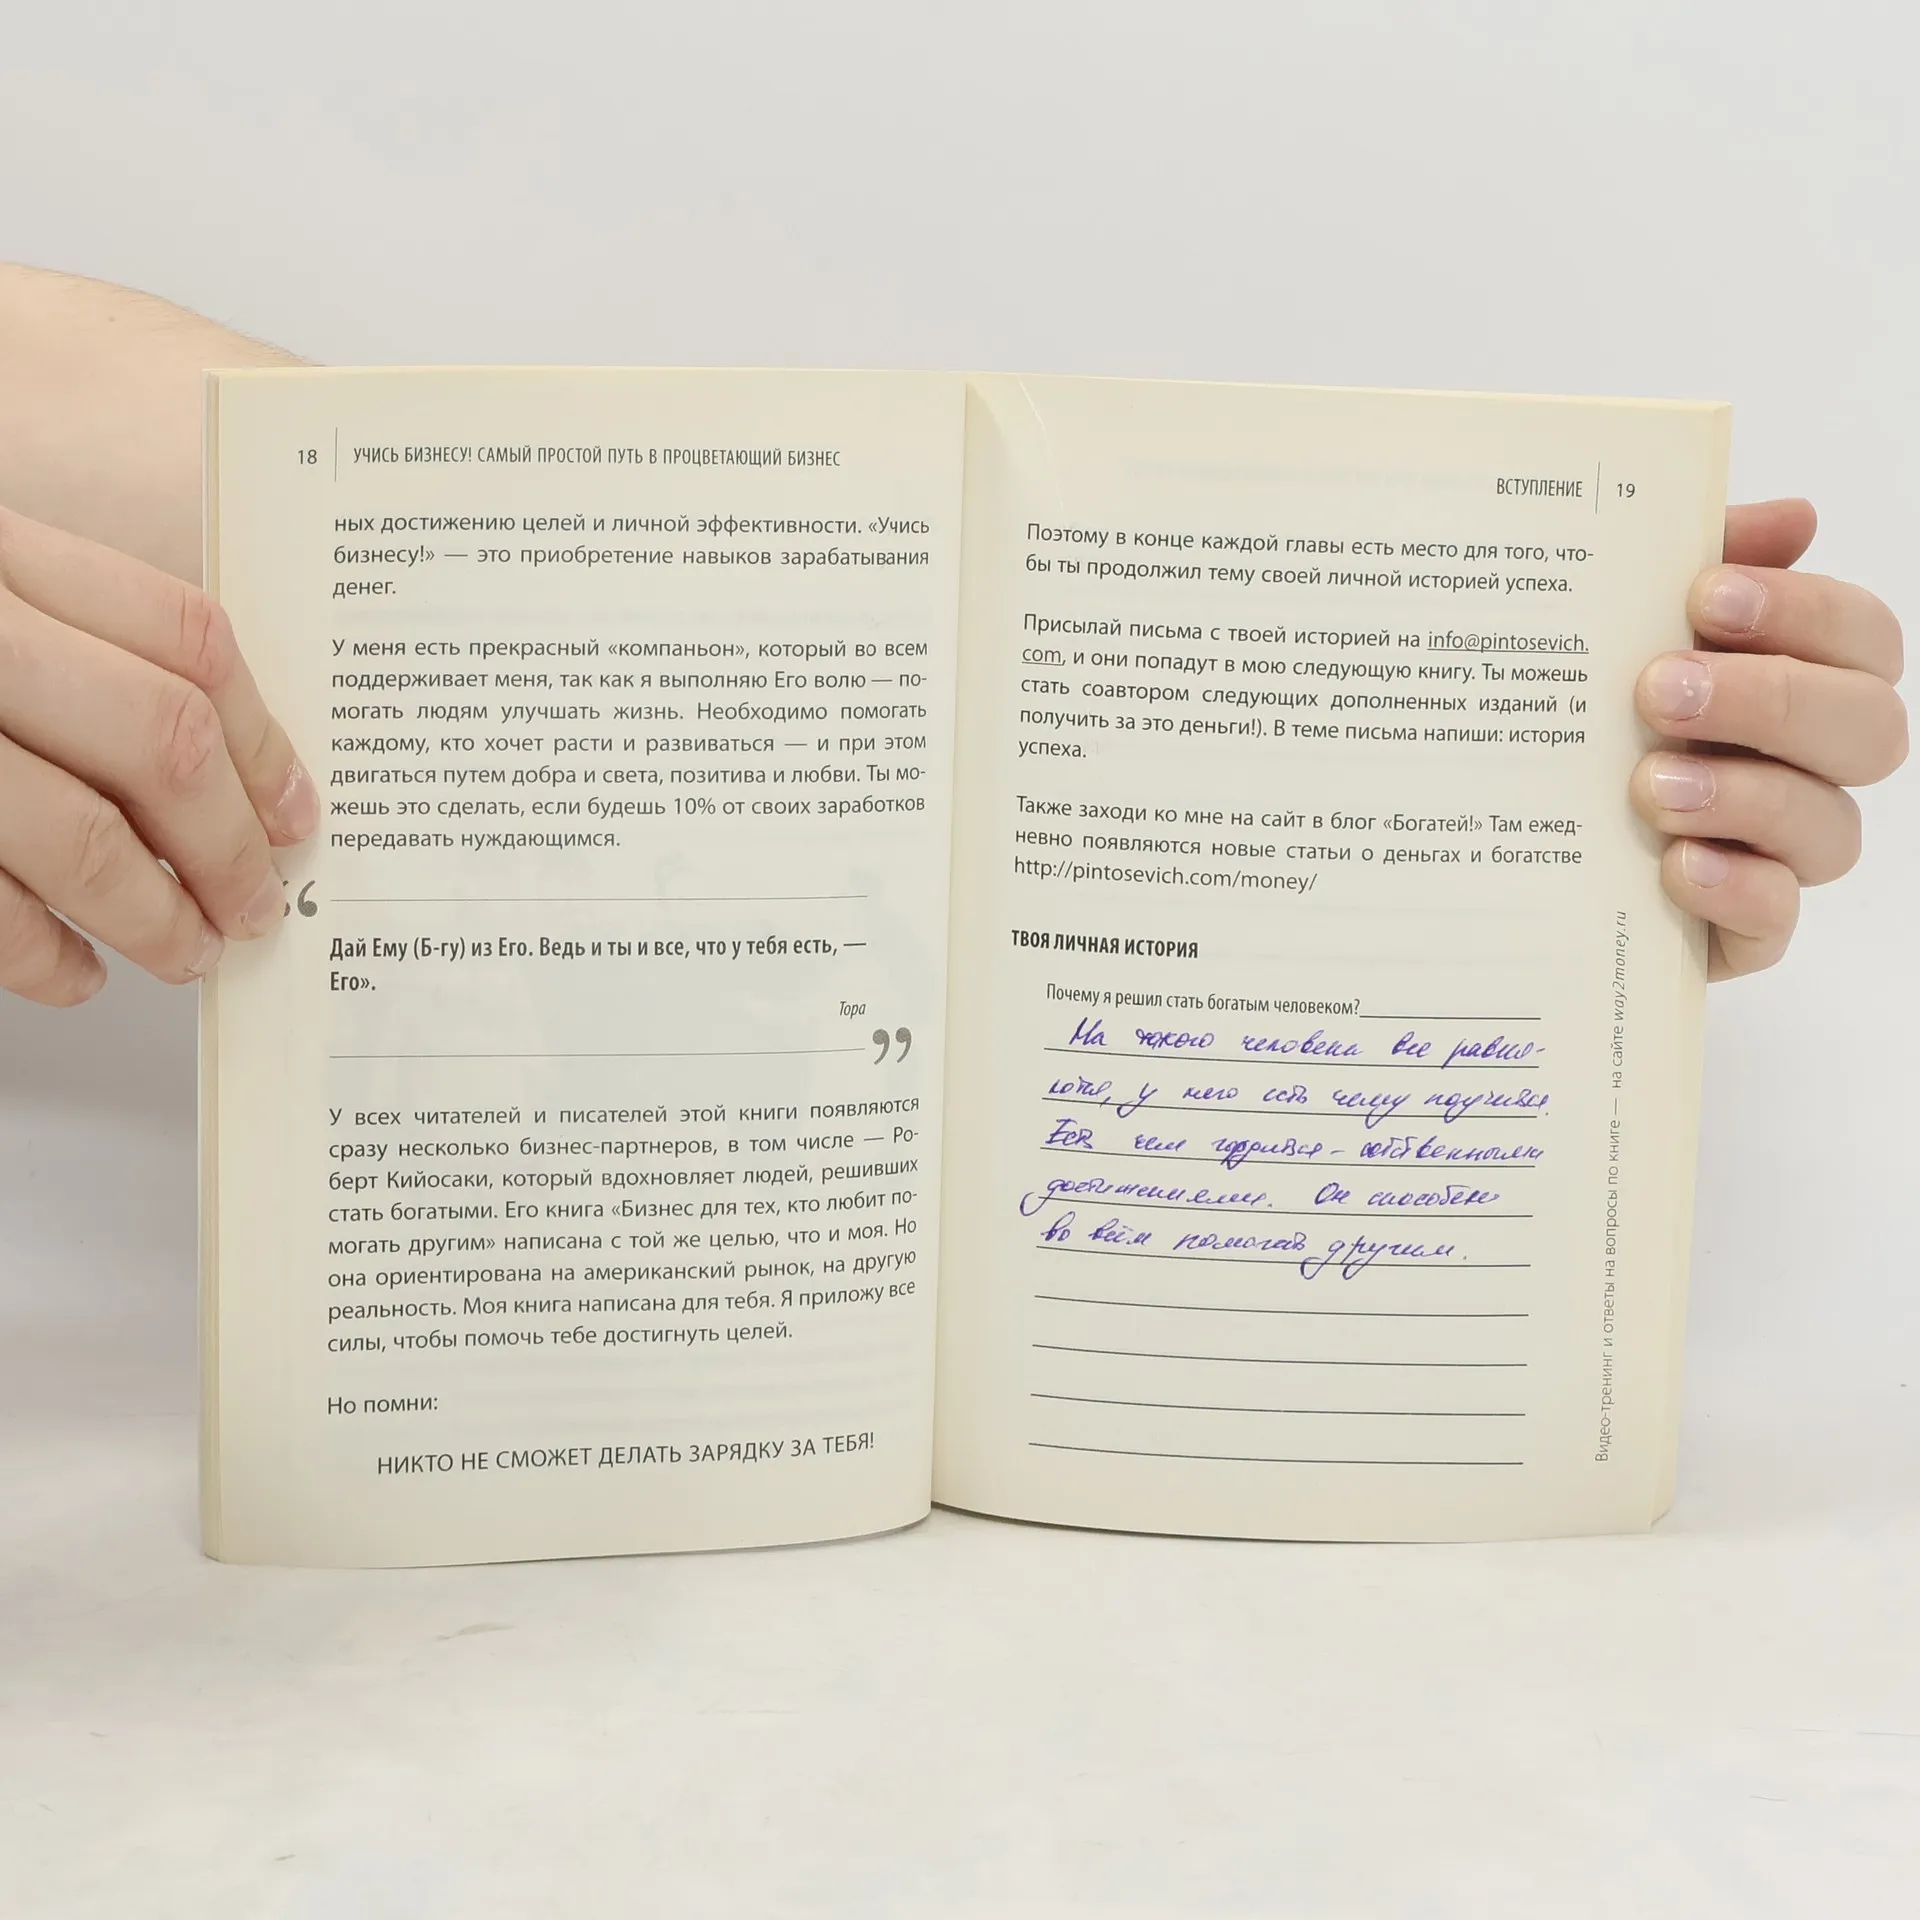 18 УЧИСЬ БИЗНЕСУ! САМЫЙ ПРОСТОЙ ПУТЬ В ПРОЦВЕТАЮЩИЙ БИЗНЕС
ных достижению целей и личной эффективности. «Учись
бизнесу!» — это приобретение навыков зарабатывания
денег.
У меня есть прекрасный «компаньон», который во всем
поддерживает меня, так как я выполняю Его волю — по-
могать людям улучшать жизнь. Необходимо помогать
каждому, кто хочет расти и развиваться — и при этом
двигаться путем добра и света, позитива и любви. Ты мо-
жешь это сделать, если будешь 10% от своих заработков
передавать нуждающимся.
“
Дай Ему (Б-гу) из Его. Ведь и ты и все, что у тебя есть, —
Его».
Тора
”
У всех читателей и писателей этой книги появляются
сразу несколько бизнес-партнеров, в том числе — Ро-
берт Кийосаки, который вдохновляет людей, решивших
стать богатыми. Его книга «Бизнес для тех, кто любит по-
могать другим» написана с той же целью, что и моя. Но
она ориентирована на американский рынок, на другую
реальность. Моя книга написана для тебя. Я приложу все
силы, чтобы помочь тебе достигнуть целей.
Но помни:
НИКТО НЕ СМОЖЕТ ДЕЛАТЬ ЗАРЯДКУ ЗА ТЕБЯ!
ВСТУПЛЕНИЕ 19
Поэтому в конце каждой главы есть место для того, что-
бы ты продолжил тему своей личной историей успеха.
Присылай письма с твоей историей на info@pintosevich.
com, и они попадут в мою следующую книгу. Ты можешь
стать соавтором следующих дополненных изданий (и
получить за это деньги!). В теме письма напиши: история
успеха.
Также заходи ко мне на сайт в блог «Богатей!» Там ежед-
невно появляются новые статьи о деньгах и богатстве
http://pintosevich.com/money/
ТВОЯ ЛИЧНАЯ ИСТОРИЯ
Почему я решил стать богатым человеком?
На такого человека все равня-
ются, у него есть чему поучиться.
Есть чем гордиться – собственными
достижениями. Он способен
во всём помогать другим.
Видео-тренинг и ответы на вопросы по книге — на сайте way2money.ru